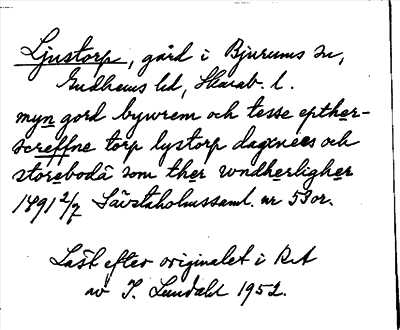 Ljustorp, gård i Bjurums sn,
Gudhems hd, Skarab. l.
myn gord bywrem och tesse epther-
screffne torp lystorp dagxnees och
storebodä som ther vndherligher
1491 2/7 Sävstaholmssaml. nr 53 or.
Läst efter originalet i RA
av I. Lundahl 1952.